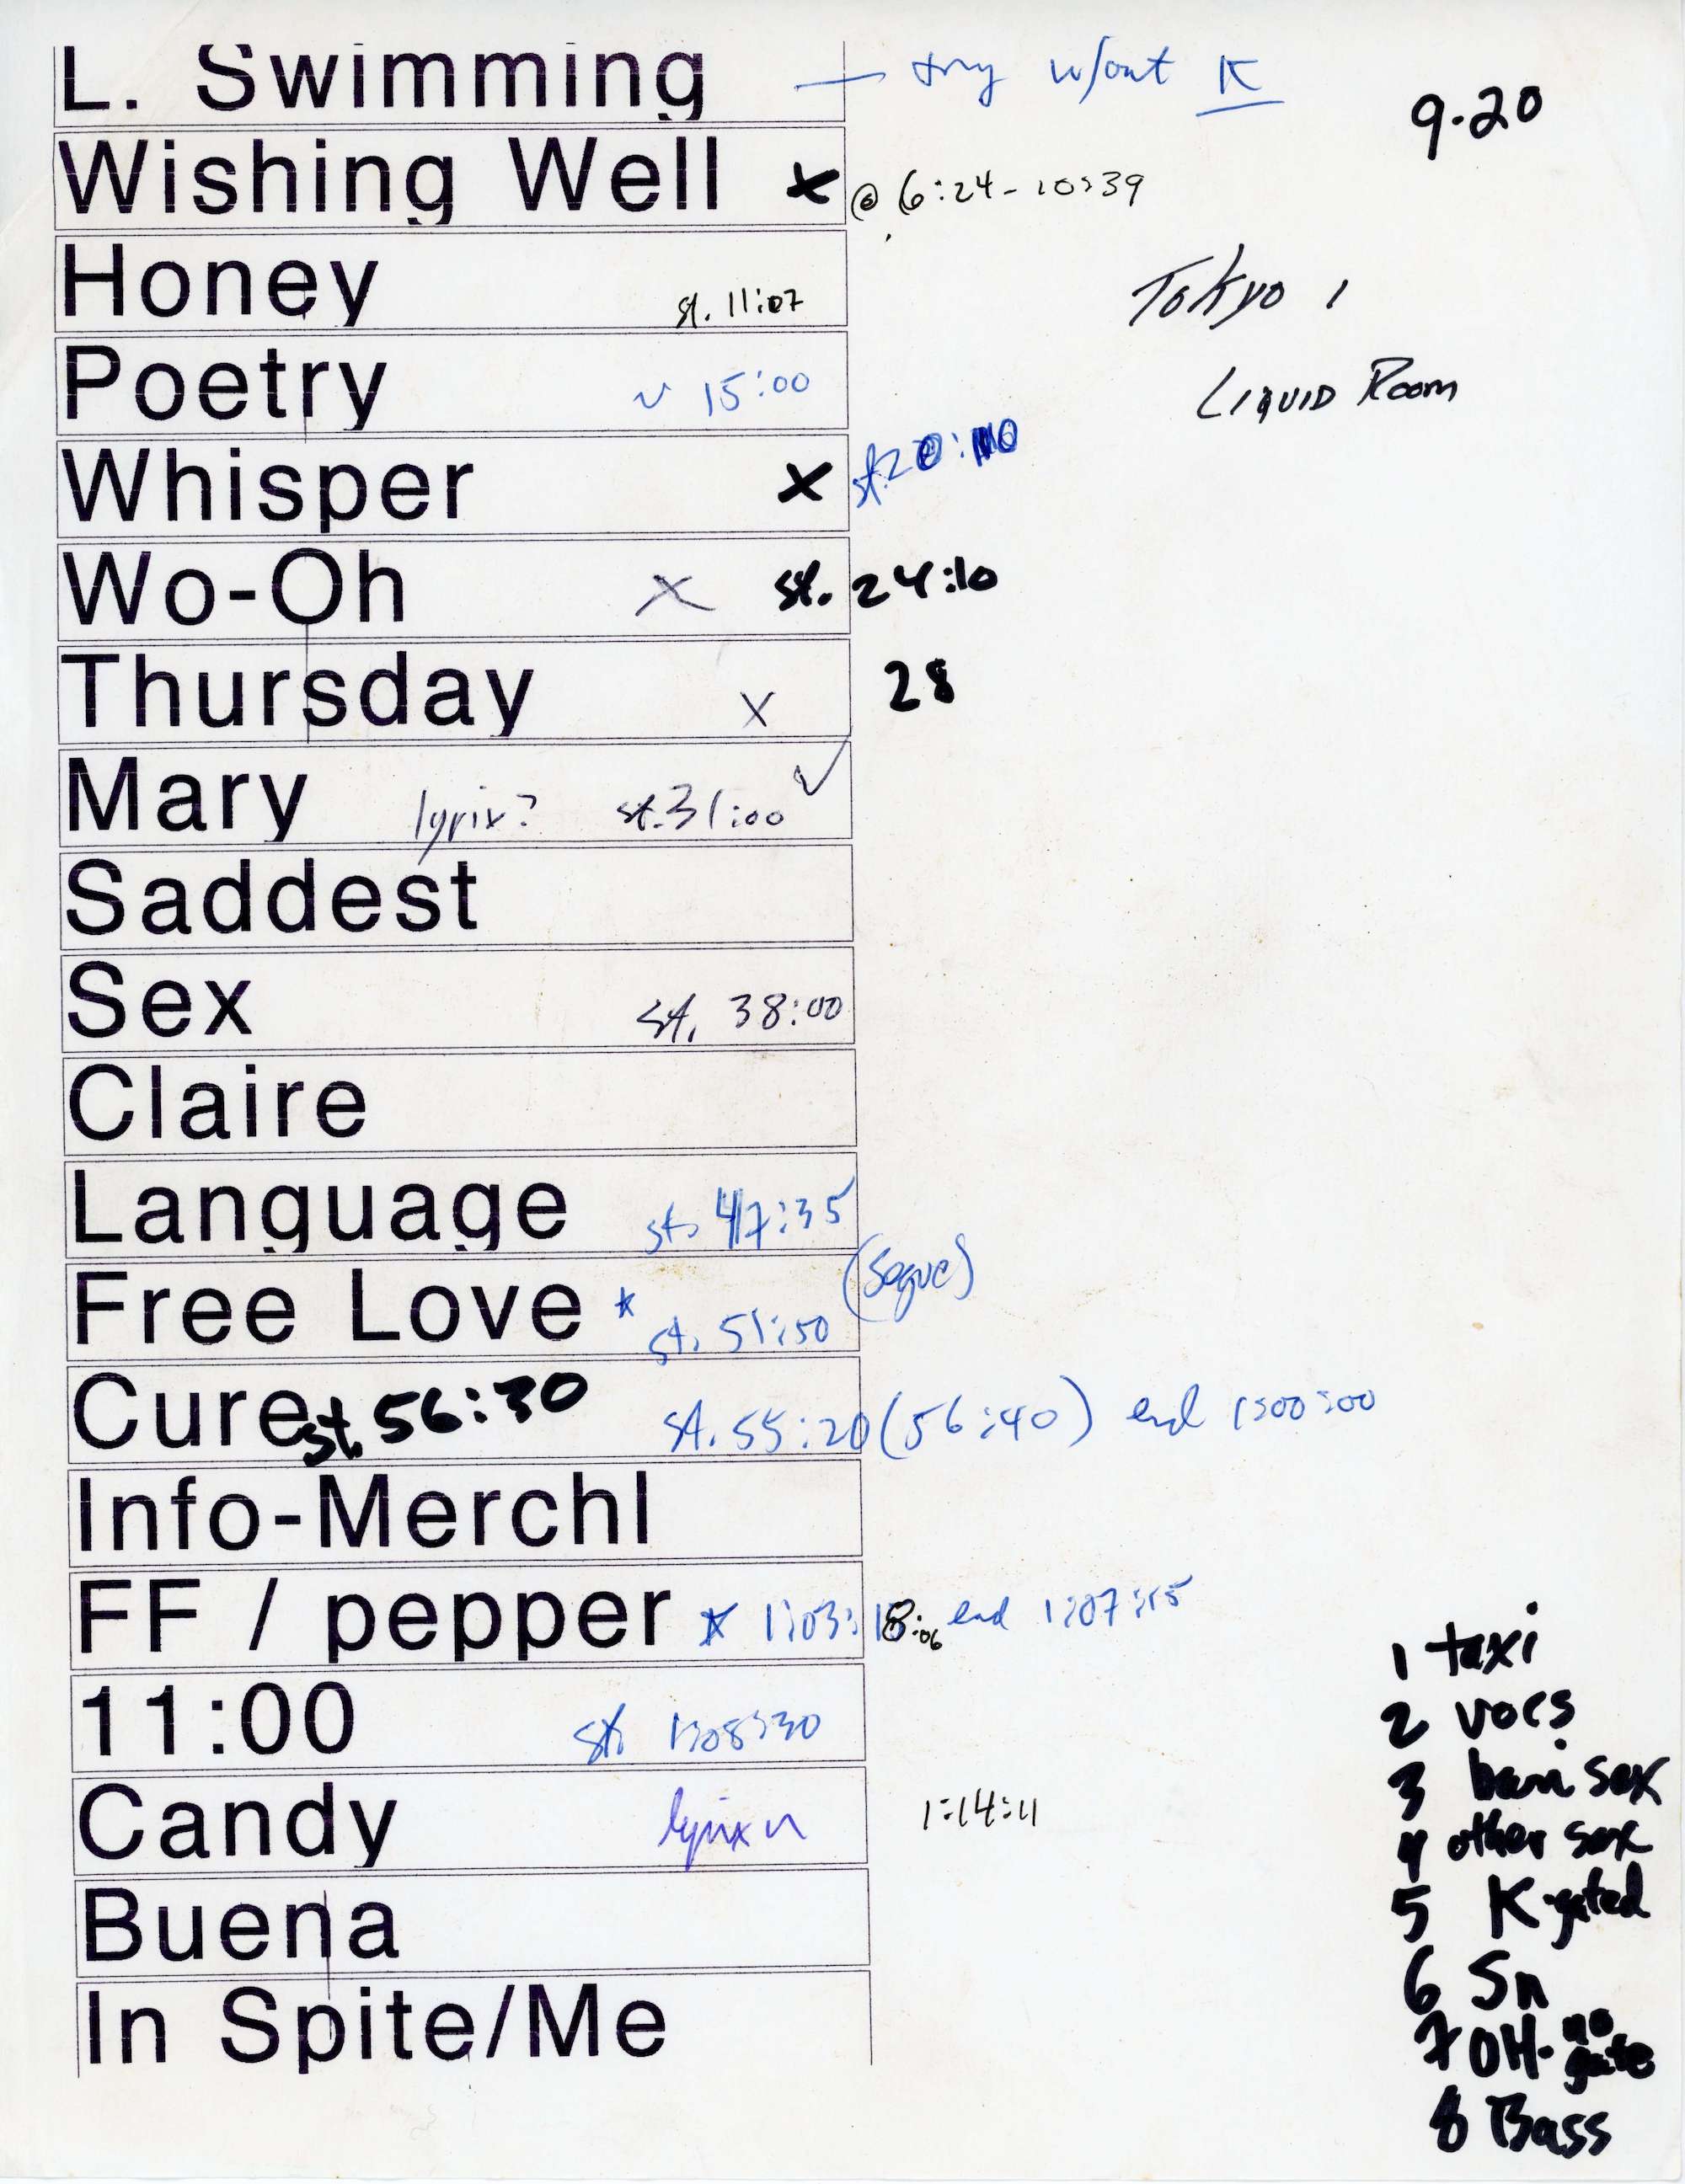 L. Swimming — try w/out K
9.20
Wishing Well x @ 6:24 - 10:39
Honey st. 11:07
Tokyo 1
Poetry 15:00
Liquid Room
Whisper x st. 20:
Wo-Oh x st. 24:10
Thursday x 28
Mary lyrix? st. 31:00 ✓
Saddest
Sex st. 38:00
Claire
Language st. 47:35
(segue)
Free Love * st. 51:50
Cure st. 56:30 st. 55:20 (56:40) end 1:00:00
Info-Merchl
FF / pepper * 1:03:18 :06 end 1:07:15
11:00 st. 1:08:30
Candy lyrix 1:14:11
Buena
In Spite/Me
1 taxi
2 vocs
3 bari sax
4 other sax
5 K gated
6 Sn
7 OH - no gate
8 Bass